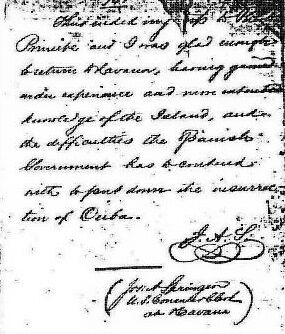 Thus ended my trip to
Principe and I was glad enough
to return to Havana, having gained
experience and more
knowledge of the Island, and
the difficulties the Spanish
Government has to contend
with to put down the insurrec
tion of Cuba.
J. A. S.
Jos. A. Springer
U.S. Consular Clerk
at Havana